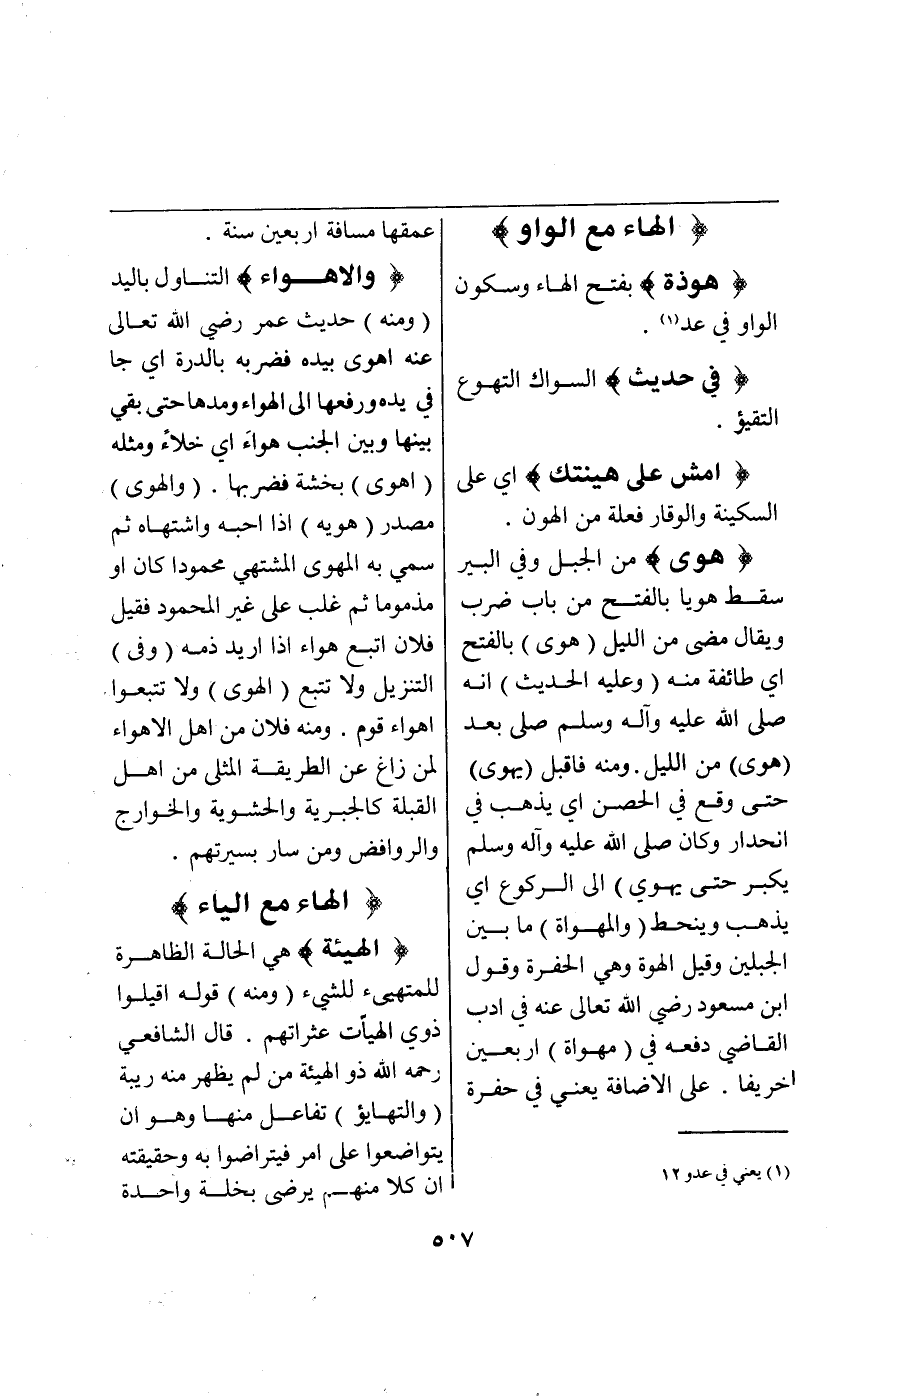 ﴿ الهاء مع الواو ﴾
﴿ هوذة ﴾ بفتح الهاء وسكون
الواو في عد(١) .
﴿ في حديث ﴾ السواك التهوع
التقيؤ .
﴿ امش على هينتك ﴾ اي على
السكينة والوقار فعلة من الهون .
﴿ هوى ﴾ من الجبل وفي البير
سقط هويا بالفتح من باب ضرب
ويقال مضى من الليل ( هوى ) بالفتح
اي طائفة منه ( وعليه الحديث ) انه
صلى الله عليه وآله وسلم صلى بعد
(هوى) من الليل. ومنه فاقبل (يهوى)
حتى وقع في الحصن اي يذهب في
انحدار وكان صلى الله عليه وآله وسلم
يكبر حتى يهوي ) الى الركوع اي
يذهب وينحط ( والمهواة ) ما بين
الجبلين وقيل الهوة وهي الحفرة وقول
ابن مسعود رضي الله تعالى عنه في ادب
القاضي دفعه في ( مهواة ) اربعين
خريفا . على الاضافة يعني في حفرة
(١) يعني في عدو ١٢
عمقها مسافة اربعين سنة .
﴿ والاهواء ﴾ التناول باليد
( ومنه ) حديث عمر رضي الله تعالى
عنه اهوى بيده فضربه بالدرة اي جا
في يده ورفعها الى الهواء ومدها حتى بقي
بينها وبين الجنب هواءَ اي خلاءً ومثله
( اهوى ) بخشة فضربها . ( والهوى )
مصدر ( هويه ) اذا احبه واشتهاه ثم
سمي به المهوى المشتهي محمودا كان او
مذموما ثم غلب على غير المحمود فقيل
فلان اتبع هواء اذا اريد ذمه ( وفى )
التنزيل ولا تتبع ( الهوى ) ولا تتبعوا
اهواء قوم . ومنه فلان من اهل الاهواء
لمن زاغ عن الطريقة المثلى من اهل
القبلة كالجبرية والحشوية والخوارج
والروافض ومن سار بسيرتهم .
﴿ الهاء مع الياء ﴾
﴿ الهيئة ﴾ هي الحالة الظاهرة
للمتهيىء للشيء ( ومنه ) قوله اقيلوا
ذوي الهيأت عثراتهم . قال الشافعي
رحمه الله ذو الهيئة من لم يظهر منه ريبة
( والتهايؤ ) تفاعل منها وهو ان
يتواضعوا على امر فيتراضوا به وحقيقته
ان كلا منهم يرضى بخلة واحدة
٥٠٧